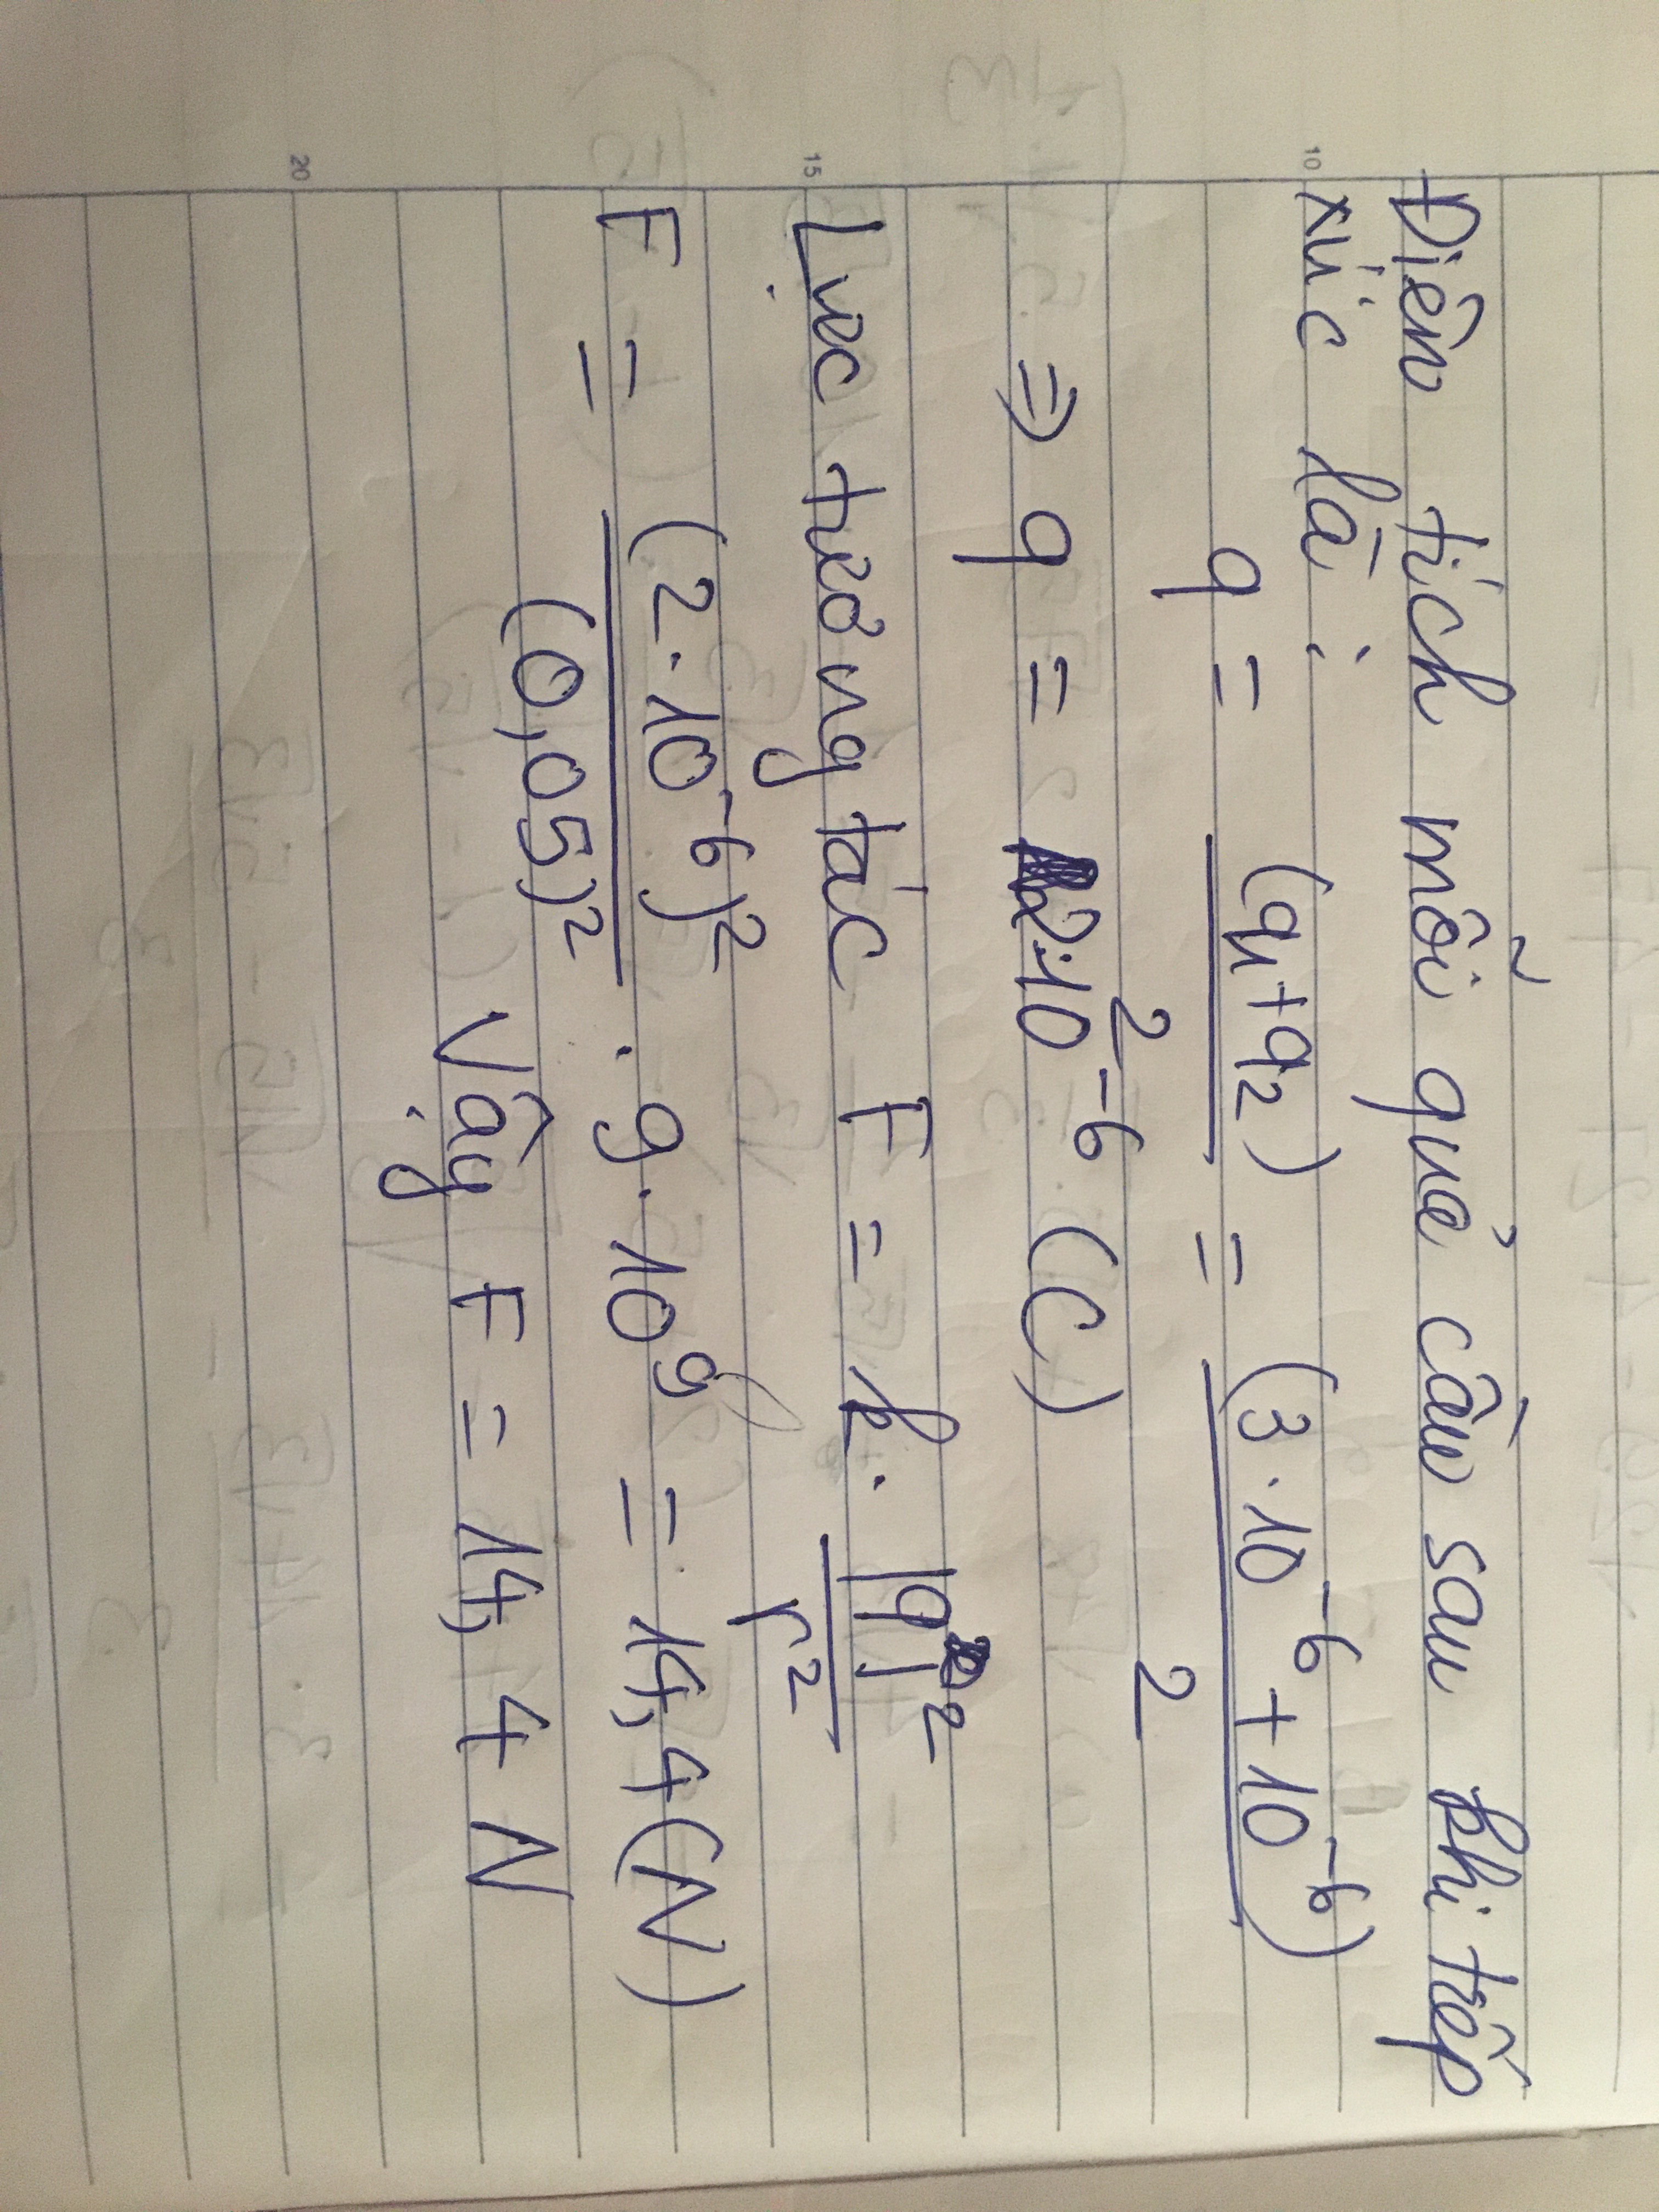 Điện tích mỗi quả cầu sau khi tiếp
xúc là :
q = (q1 + q2) / 2 = (3 . 10^-6 + 10^-6) / 2
⇒ q = 2.10^-6 (C)
Lực tương tác F = k . |q|^2 / r^2
F = (2.10^-6)^2 / (0,05)^2 . 9.10^9 = 14,4 (N)
Vậy F = 14,4 N
10
15
20